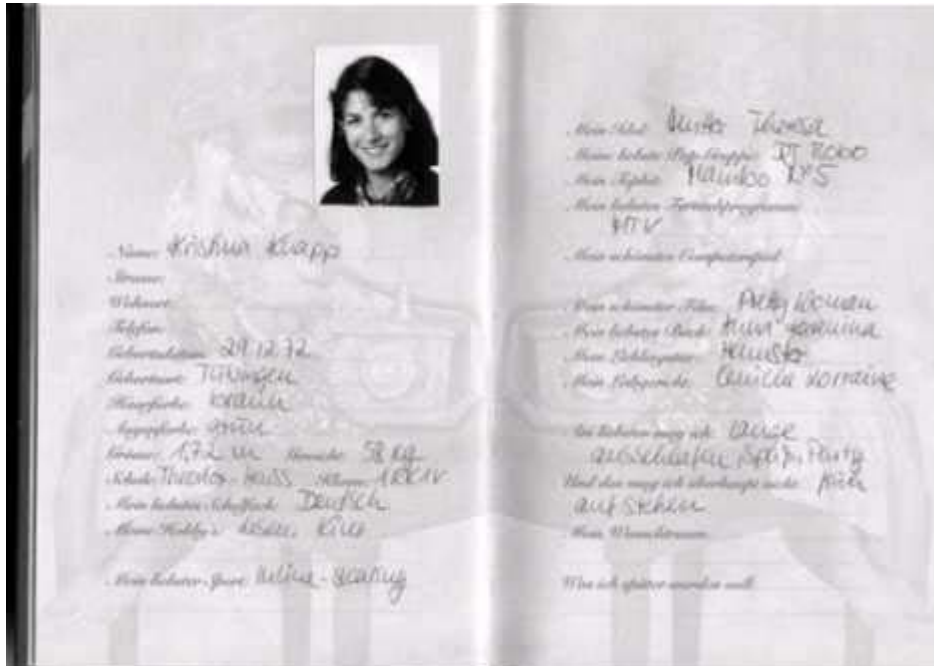 Name: Kristina Knapp
Strasse:
Wohnort:
Telefon:
Geburtsdatum: 29.12.72
Geburtsort: Tübingen
Haarfarbe: braun
Augenfarbe: grün
Grösse: 1,72 m Gewicht: 58 kg
Schule: Theodor-Heuss Klasse:
Mein liebstes Schulfach: Deutsch
Meine Hobby's: lesen, Kino
Mein liebster Sport: Inline-Skating
Mein Idol: Mutter Theresa
Meine liebste Pop-Gruppe: DJ Bobo
Mein Tophit: Mambo N°5
Mein liebstes Fernsehprogramm:
MTV
Mein schönstes Computerspiel:
Mein schönster Film: Pretty Woman
Mein liebstes Buch: Anna Karenina
Mein Lieblingstier: Hamster
Mein Leibgericht: Quiche Lorraine
Am liebsten mag ich: lange
ausschlafen, Party
Und das mag ich überhaupt nicht: früh
aufstehen
Mein Wunschtraum:
Was ich später werden will: